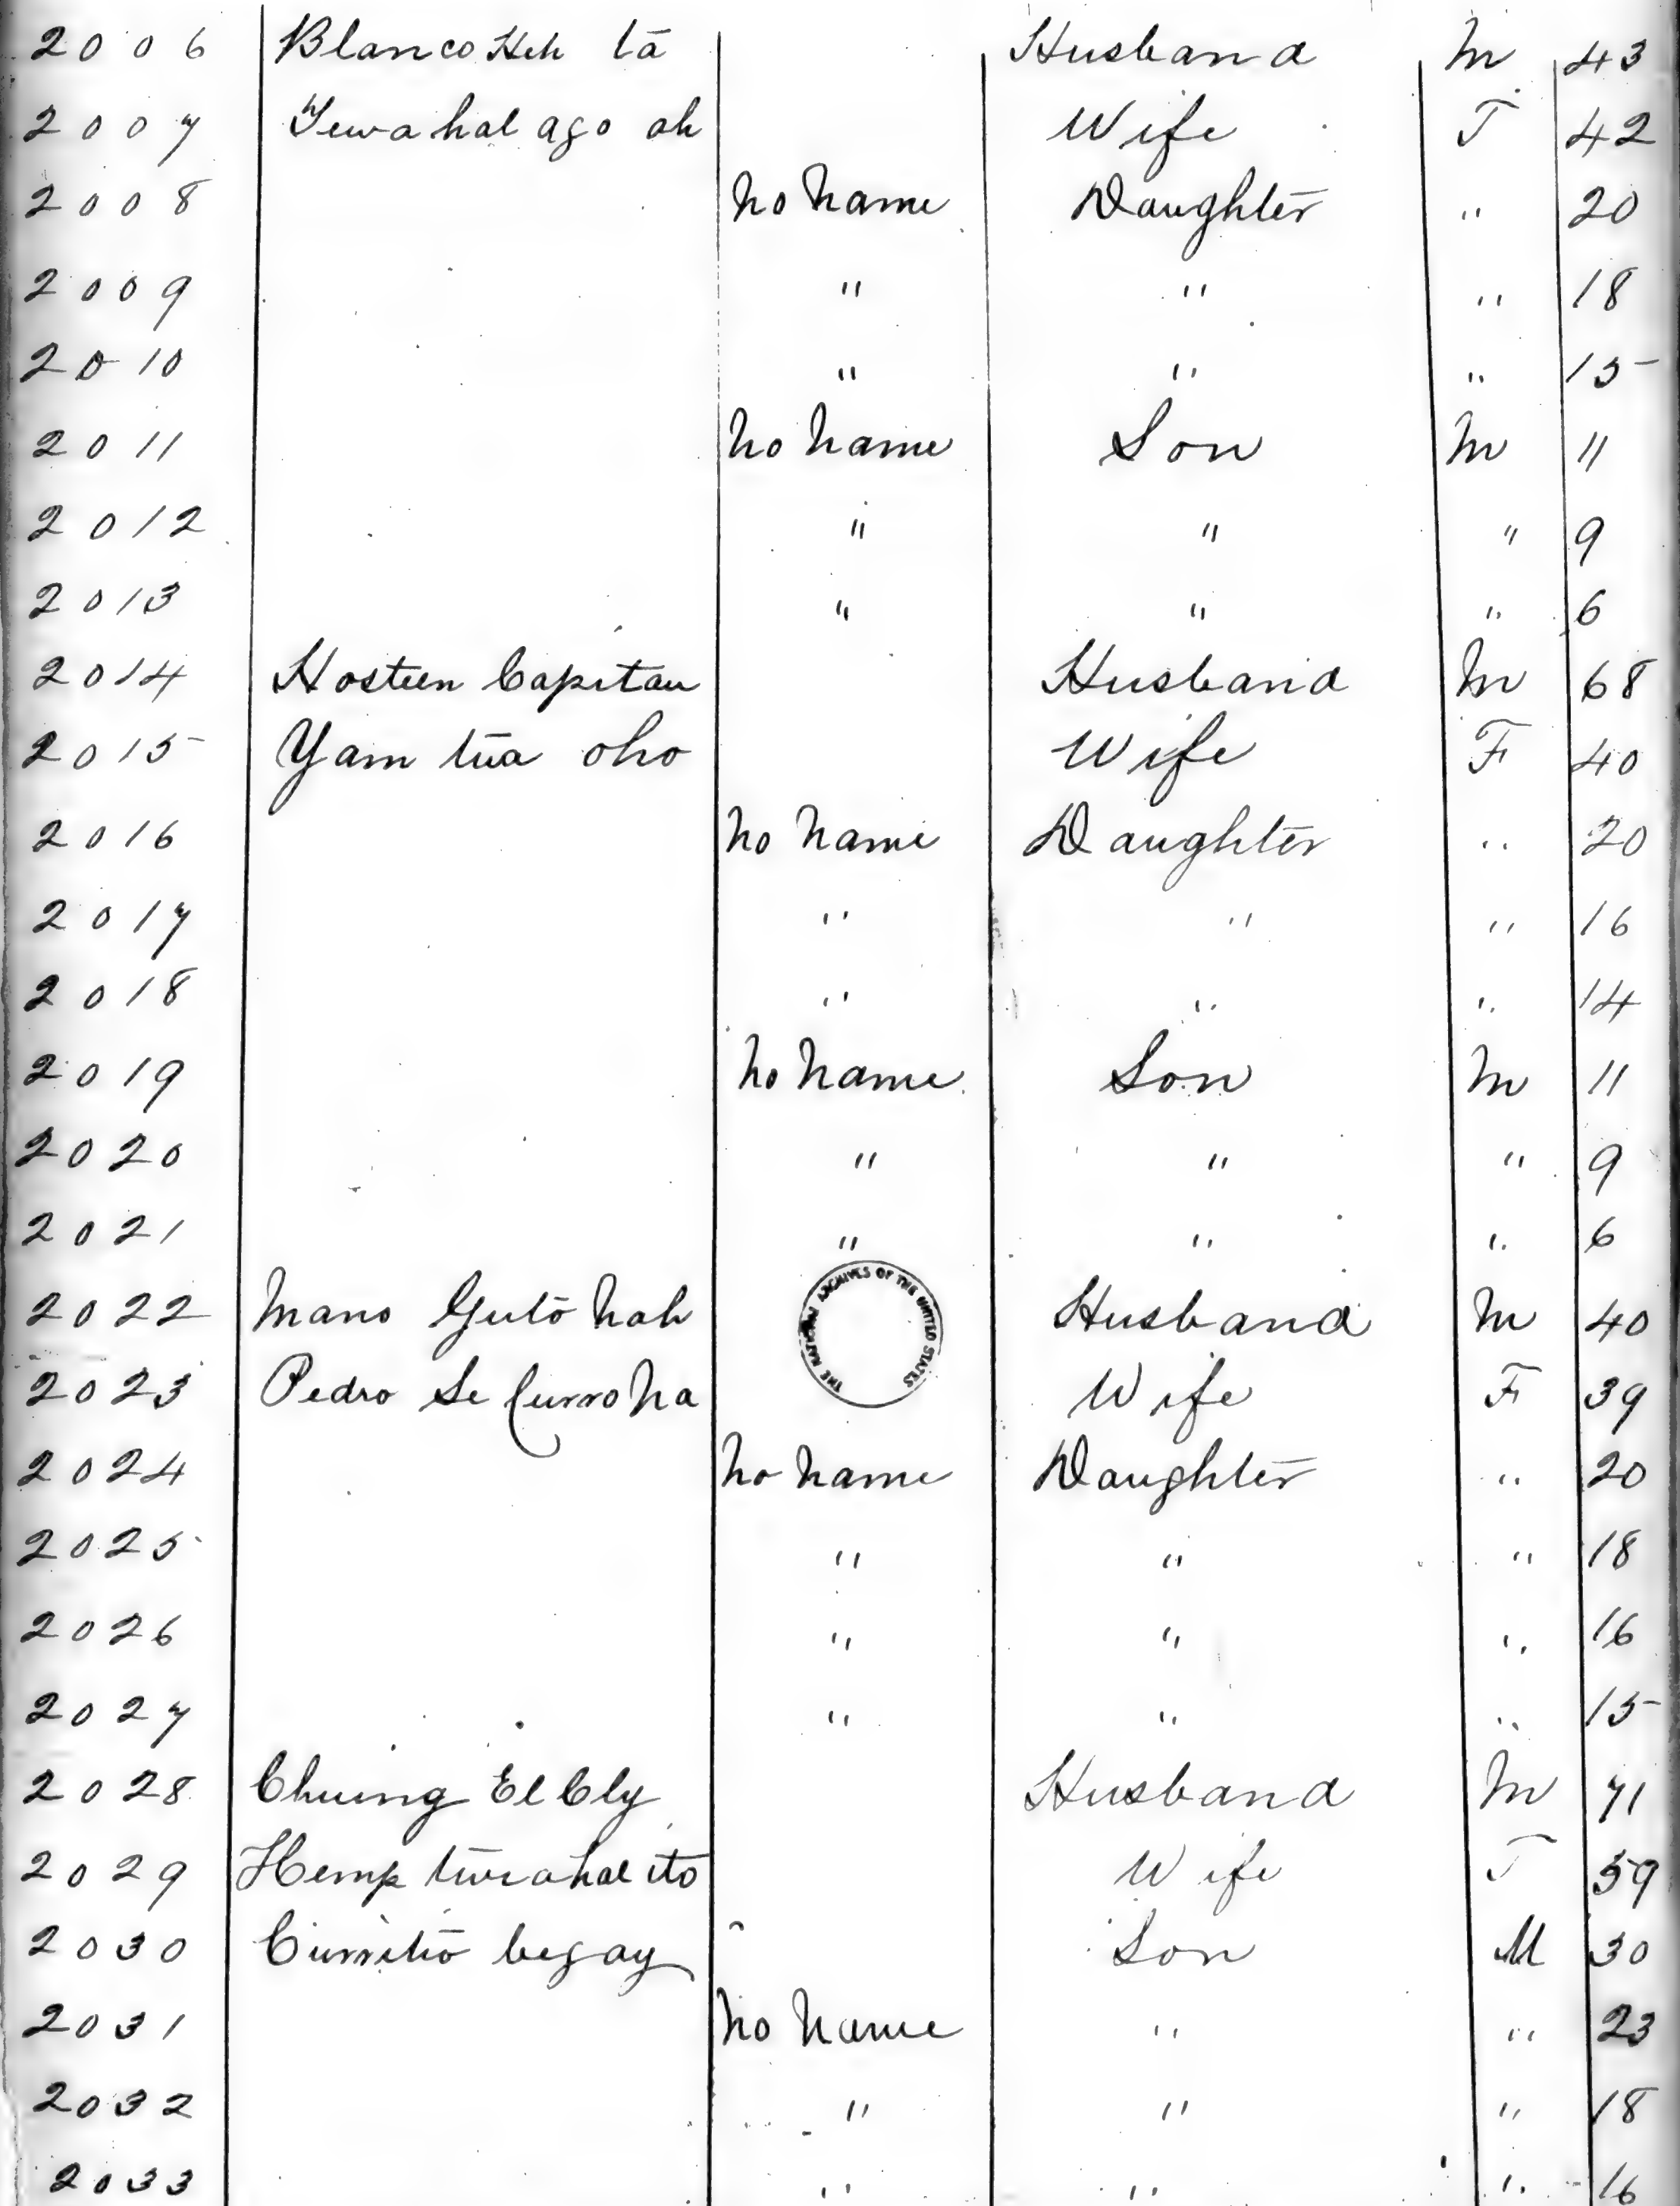 2006 Blanco Heh la Husband M 43
2007 Yewahal ago ah Wife F 42
2008 No Name Daughter " 20
2009 " " " 18
2010 " " " 15
2011 No Name Son M 11
2012 " " " 9
2013 " " " 6
2014 Hosteen Capitan Husband M 68
2015 Yam tua oho Wife F 40
2016 No Name Daughter " 20
2017 " " " 16
2018 " " " 14
2019 No Name Son M 11
2020 " " " 9
2021 " " " 6
THE NATIONAL ARCHIVES OF THE UNITED STATES
2022 Mano Guto Nah Husband M 40
2023 Pedro Se Curro Na Wife F 39
2024 No Name Daughter " 20
2025 " " " 18
2026 " " " 16
2027 " " " 15
2028 Chuing El Cly Husband M 71
2029 Hemp Wife F 59
2030 begay Son M 30
2031 No Name " " 23
2032 " " " 18
2033 " " " 16